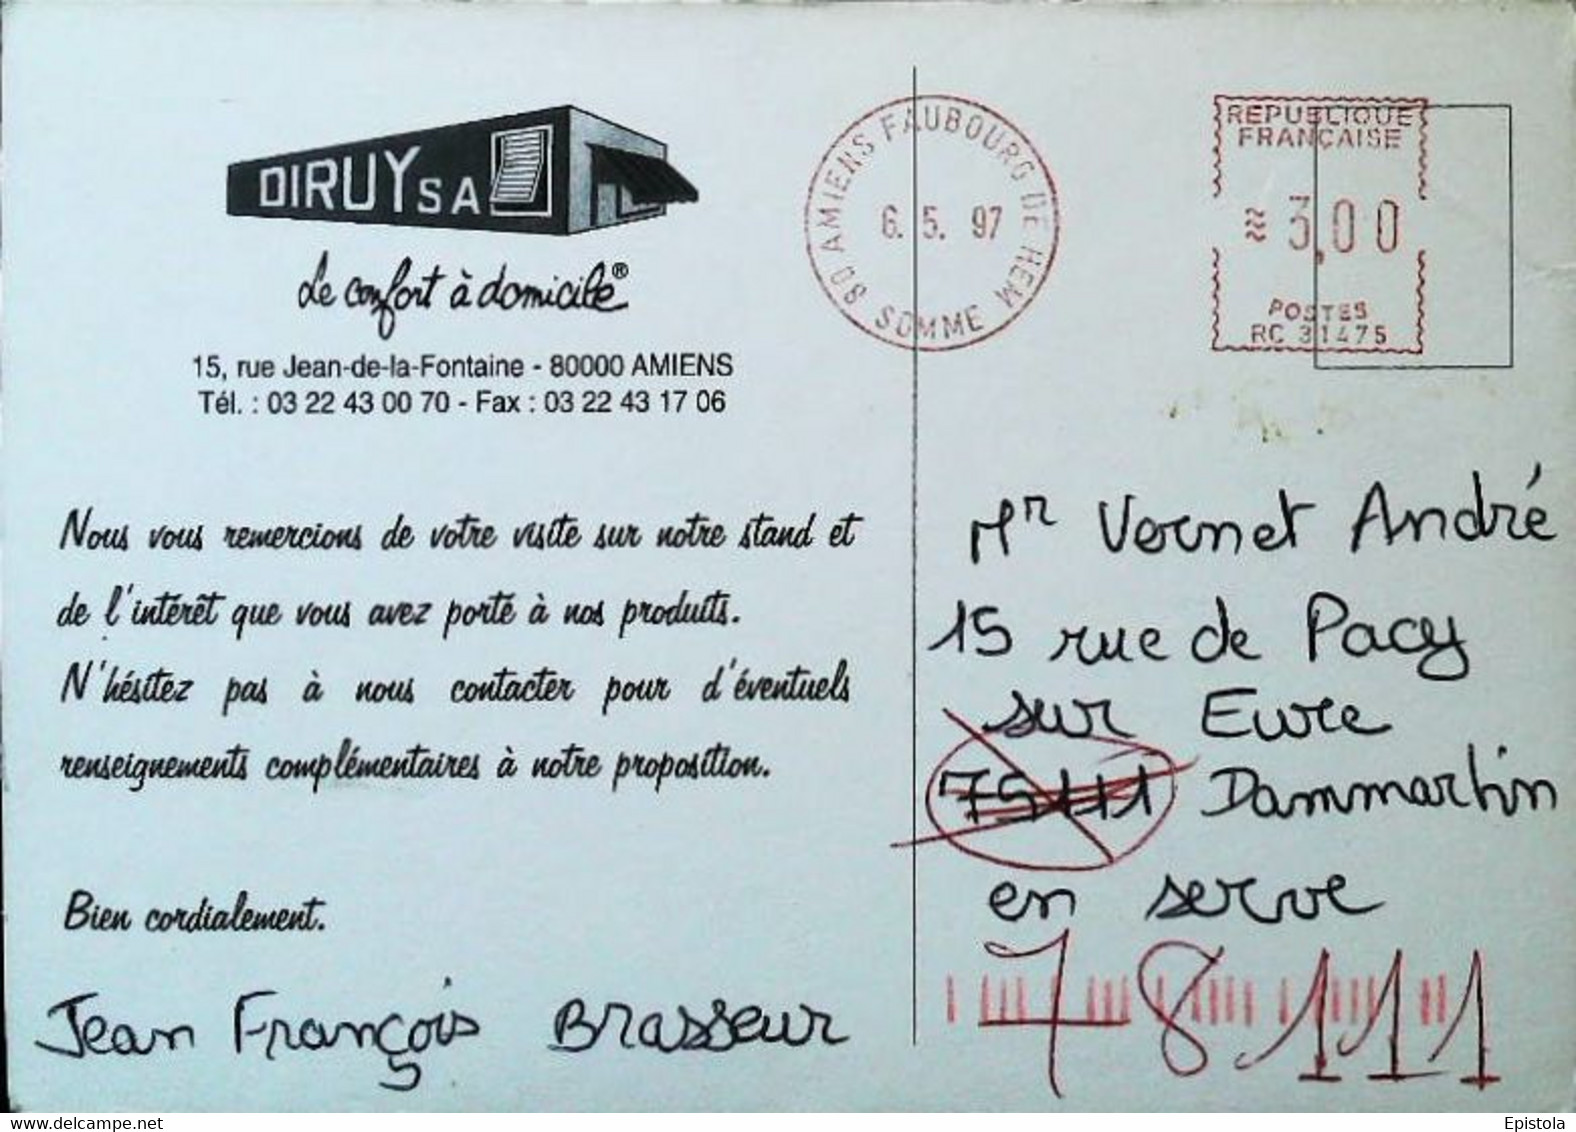 DIRUY SA
Le confort à domicile®
15, rue Jean-de-la-Fontaine - 80000 AMIENS
Tél. : 03 22 43 00 70 - Fax : 03 22 43 17 06
Nous vous remercions de votre visite sur notre stand et
de l'intérêt que vous avez porté à nos produits.
N'hésitez pas à nous contacter pour d'éventuels
renseignements complémentaires à notre proposition.
Bien cordialement.
Jean François Brasseur
80 AMIENS FAUBOURG DE HEM
6. 5. 97
SOMME
REPUBLIQUE
FRANÇAISE
≈ 3,00
POSTES
RC 31475
Mr Vernet André
15 rue de Pacy
sur Eure
75111 Dammartin
en serve
78111
Epistola